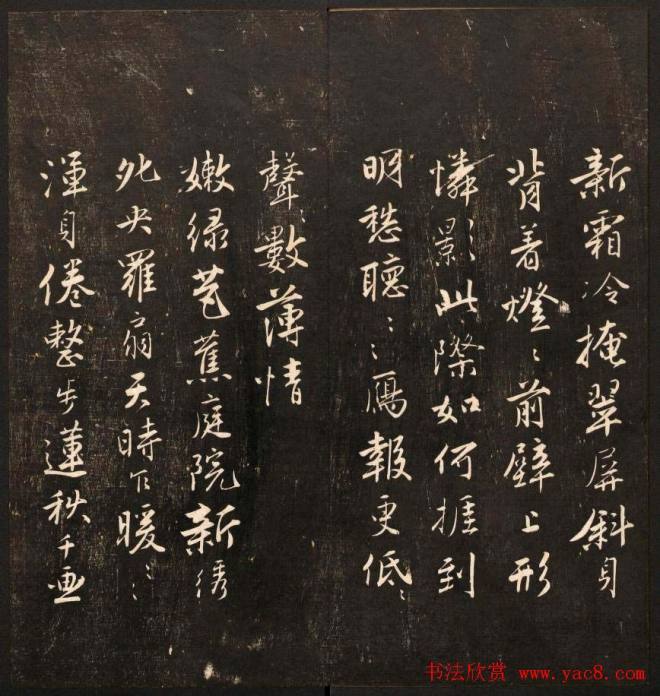 新霜冷掩翠屏斜身
背着燈〻前壁上形
憐影此際如何捱到
明愁聽〻〻鴈報更低〻
聲〻數薄情
嫩绿芭蕉庭院新绣
央羅扇天時乍暖〻〻
渾身倦整步蓮秋千画
书法欣赏 www.yac8.com